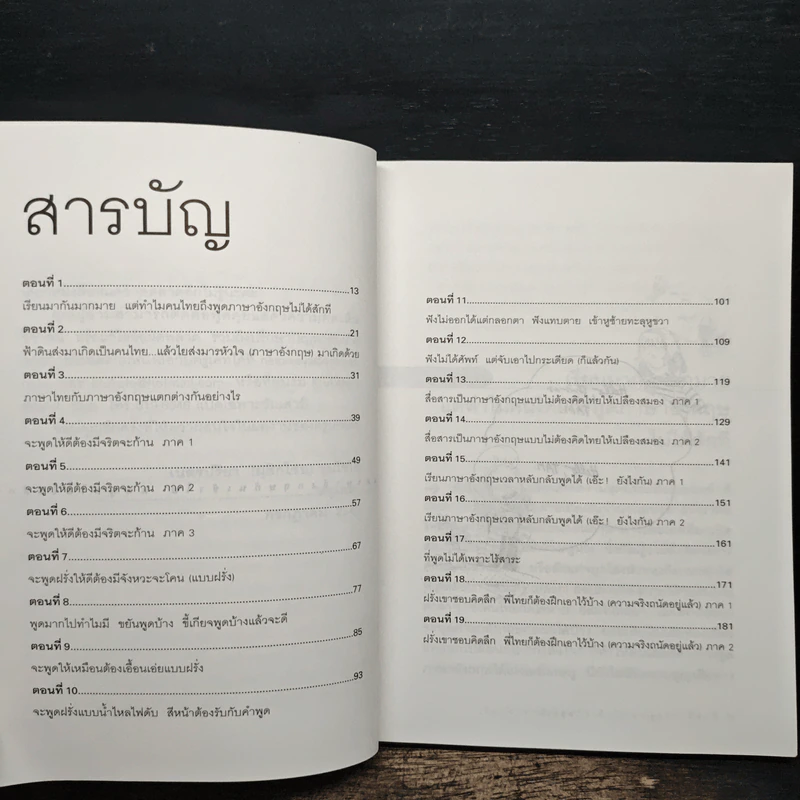 สารบัญ
ตอนที่ 1.......................................................................13
เรียนมากันมากมาย แต่ทำไมคนไทยถึงพูดภาษาอังกฤษไม่ได้สักที
ตอนที่ 2.......................................................................21
ฟ้าดินส่งมาเกิดเป็นคนไทย...แล้วไยส่งมารหัวใจ (ภาษาอังกฤษ) มาเกิดด้วย
ตอนที่ 3.......................................................................31
ภาษาไทยกับภาษาอังกฤษแตกต่างกันอย่างไร
ตอนที่ 4.......................................................................39
จะพูดให้ดีต้องมีจริตจะก้าน ภาค 1
ตอนที่ 5.......................................................................49
จะพูดให้ดีต้องมีจริตจะก้าน ภาค 2
ตอนที่ 6.......................................................................57
จะพูดให้ดีต้องมีจริตจะก้าน ภาค 3
ตอนที่ 7.......................................................................67
จะพูดฝรั่งให้ดีต้องมีจังหวะจะโคน (แบบฝรั่ง)
ตอนที่ 8.......................................................................77
พูดมากไปทำไมมี ขยันพูดบ้าง ขี้เกียจพูดบ้างแล้วจะดี
ตอนที่ 9.......................................................................85
จะพูดให้เหมือนต้องเอื้อนเอ่ยแบบฝรั่ง
ตอนที่ 10.......................................................................93
จะพูดฝรั่งแบบน้ำไหลไฟดับ สีหน้าต้องรับกับคำพูด
ตอนที่ 11.......................................................................101
ฟังไม่ออกได้แต่กลอกตา ฟังแทบตาย เข้าหูซ้ายทะลุหูขวา
ตอนที่ 12.......................................................................109
ฟังไม่ได้ศัพท์ แต่จับเอาไปกระเดียด (ก็แล้วกัน)
ตอนที่ 13.......................................................................119
สื่อสารเป็นภาษาอังกฤษแบบไม่ต้องคิดไทยให้เปลืองสมอง ภาค 1
ตอนที่ 14.......................................................................129
สื่อสารเป็นภาษาอังกฤษแบบไม่ต้องคิดไทยให้เปลืองสมอง ภาค 2
ตอนที่ 15.......................................................................141
เรียนภาษาอังกฤษเวลาหลับกลับพูดได้ (เอ๊ะ! ยังไงกัน) ภาค 1
ตอนที่ 16.......................................................................151
เรียนภาษาอังกฤษเวลาหลับกลับพูดได้ (เอ๊ะ! ยังไงกัน) ภาค 2
ตอนที่ 17.......................................................................161
ที่พูดไม่ได้เพราะไร้สาระ
ตอนที่ 18.......................................................................171
ฝรั่งเขาชอบคิดลึก พี่ไทยก็ต้องฝึกเอาไว้บ้าง (ความจริงถนัดอยู่แล้ว) ภาค 1
ตอนที่ 19.......................................................................181
ฝรั่งเขาชอบคิดลึก พี่ไทยก็ต้องฝึกเอาไว้บ้าง (ความจริงถนัดอยู่แล้ว) ภาค 2